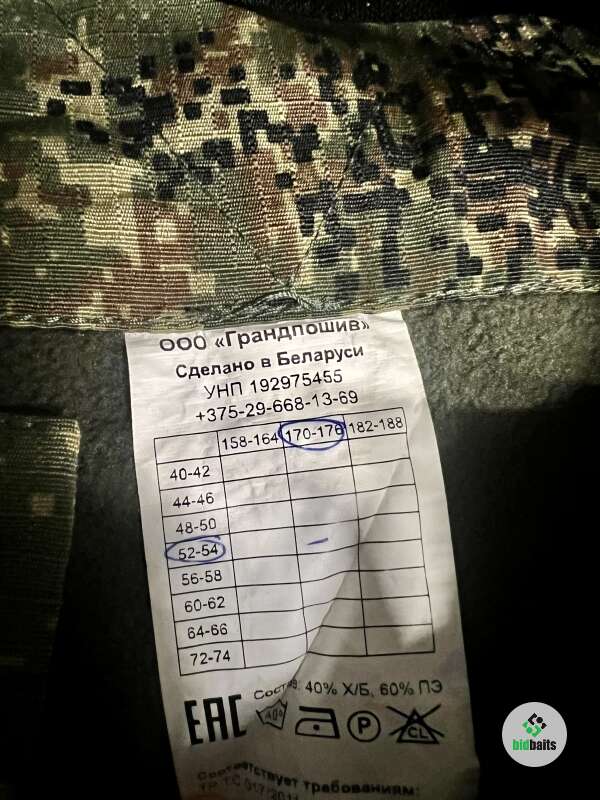 ООО «Грандпошив»
Сделано в Беларуси
УНП 192975455
+375-29-668-13-69
158-164 170-176 182-188
40-42
44-46
48-50
52-54
56-58
60-62
64-66
72-74
Состав: 40% Х/Б, 60% ПЭ
EAC 40° P CL
Соответствует требованиям:
ТР ТС 017/2011
bidbaits